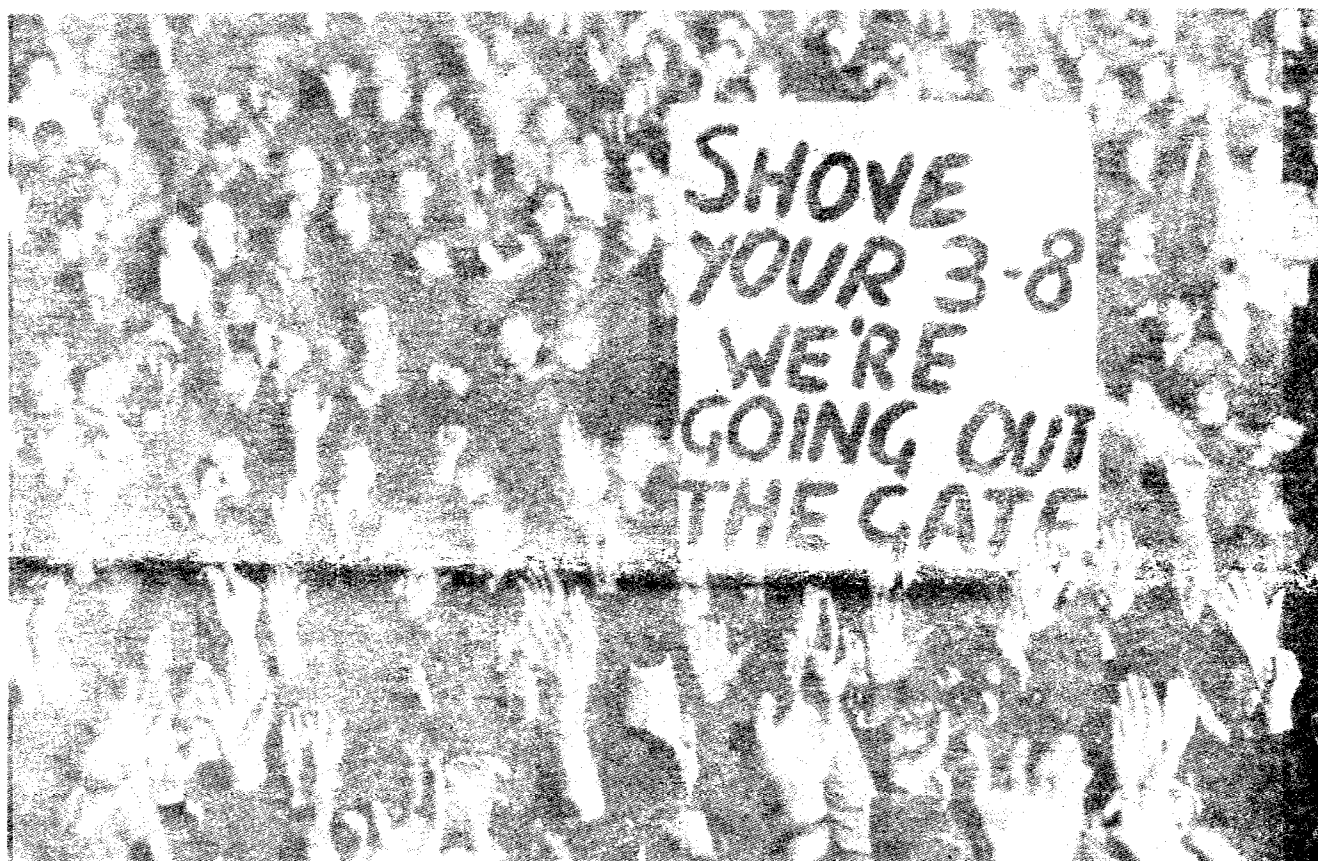 SHOVE
YOUR 3-8
WE'RE
GOING OUT
THE GATE